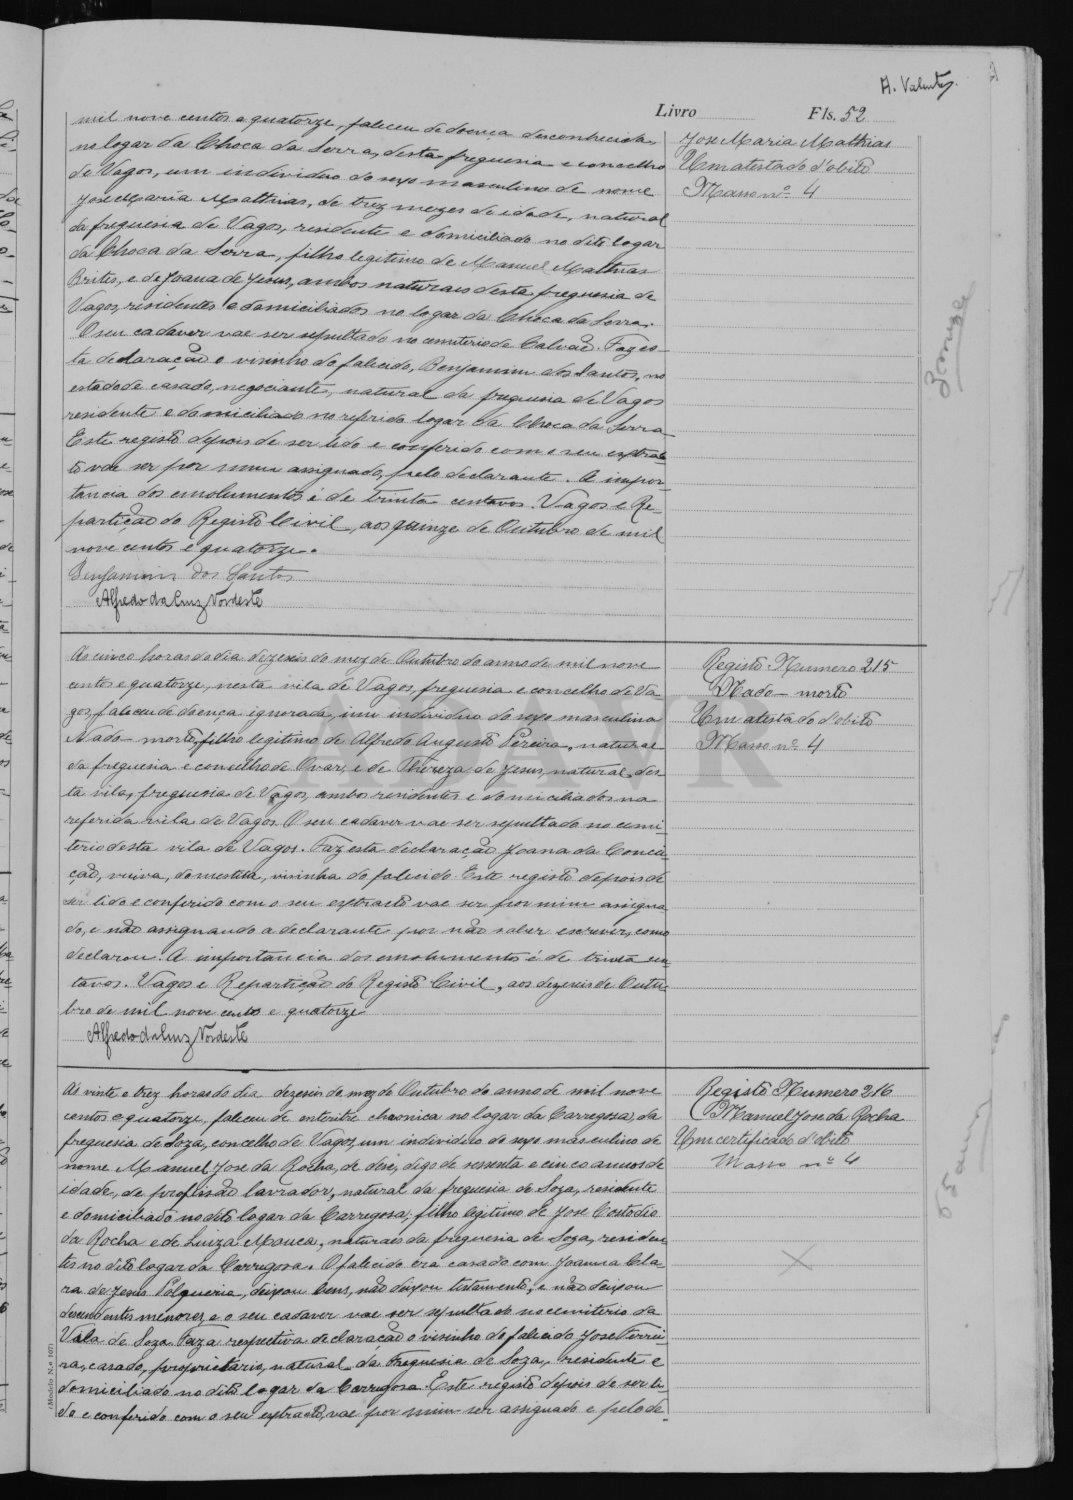 A. Valente
Livro Fls. 52
mil nove centos e quatorze, faleceu de doença desconhecida,
no logar da Choca da Serra, desta freguesia e concelho
de Vagos, um individuo do sexo masculino de nome
José Maria Mathias, de trez mezes de idade, natural
da freguesia de Vagos, residente e domiciliado no dito logar
da Choca da Serra, filho legitimo de Manuel Mathias
Brites, e de Joana de Jesus, ambos naturaes desta freguesia de
Vagos, residentes e domiciliados no logar da Choca da Serra.
O seu cadaver vae ser sepultado no cemiterio de Calvão. Faz es-
ta declaração o visinho do falecido, Benjamim dos Santos, no
estado de casado, negociante, natural da freguesia de Vagos
residente e domiciliado no referido logar da Choca da Serra
Este registo depois de ser lido e conferido com o seu extrac-
to vae ser por mim assignado, pelo declarante. A impor-
tancia dos emolumentos é de trinta centavos. Vagos e Re-
partição do Registo Civil, aos quinze de Outubro de mil
nove centos e quatorze.
Benjamim dos Santos
Alfredo da Cruz Nordeste
José Maria Mathias
Um atestado d'obito
Masso nº 4
3 mezes
As cinco horas do dia dezeseis do mez de Outubro do anno de mil nove
centos e quatorze, nesta vila de Vagos, freguesia e concelho de Va
gos, faleceu de doença ignorada, um individuo do sexo masculino
Nado-morto, filho legitimo de Alfredo Augusto Pereira, natural
da freguesia e concelho de Ovar, e de Thereza de Jesus, natural des
ta vila, freguesia de Vagos, ambos residentes e domiciliados na
referida vila de Vagos. O seu cadaver vae ser sepultado no cemi-
terio desta vila de Vagos. Faz esta declaração Joana da Concei-
ção, viuva, domestica, visinha do falecido. Este registo depois de
ser lido e conferido com o seu extracto vae ser por mim assigna
do, e não assignando a declarante por não saber escrever, como
declarou. A importancia dos emolumentos é de trinta cen-
tavos. Vagos e Repartição do Registo Civil, aos dezeseis de Outu-
bro de mil nove centos e quatorze
Alfredo da Cruz Nordeste
Registo Numero 215
Nado-morto
Um atestado d'obito
Masso nº 4
As vinte e trez horas do dia dezeseis do mez de Outubro do anno de mil nove
centos e quatorze, faleceu de enterite chronica no logar da Carregosa, da
freguesia de Soza, concelho de Vagos, um individuo do sexo masculino de
nome Manuel Jose da Rocha, de dése, digo de sessenta e cinco annos de
idade, de profissão lavrador, natural da freguesia de Soza, residente
e domiciliado no dito logar da Carregosa, filho legitimo de José Costodio
da Rocha e de Luiza Mouca, naturaes da freguesia de Soza, residen
tes no dito logar da Carregosa. O falecido era casado com Joanna Cla-
ra de Jesus Polqueria, deixou bens, não deixou testamento, e não deixou
descendentes menores, e o seu cadaver vae ser sepultado no cemiterio da
Vila de Soza. Faz a respectiva declaração o visinho do falecido, Jose Ferrei
ra, casado, proprietario, natural da freguesia de Soza, residente e
domiciliado no dito logar da Carregosa. Este registo depois de ser li
do e conferido com o seu extracto, vae por mim ser assignado e pelo de-
Registo Numero 216
Manuel Jose da Rocha
Um certificado d'obito
Masso nº 4
65 annos
(Modelo N.o 107)